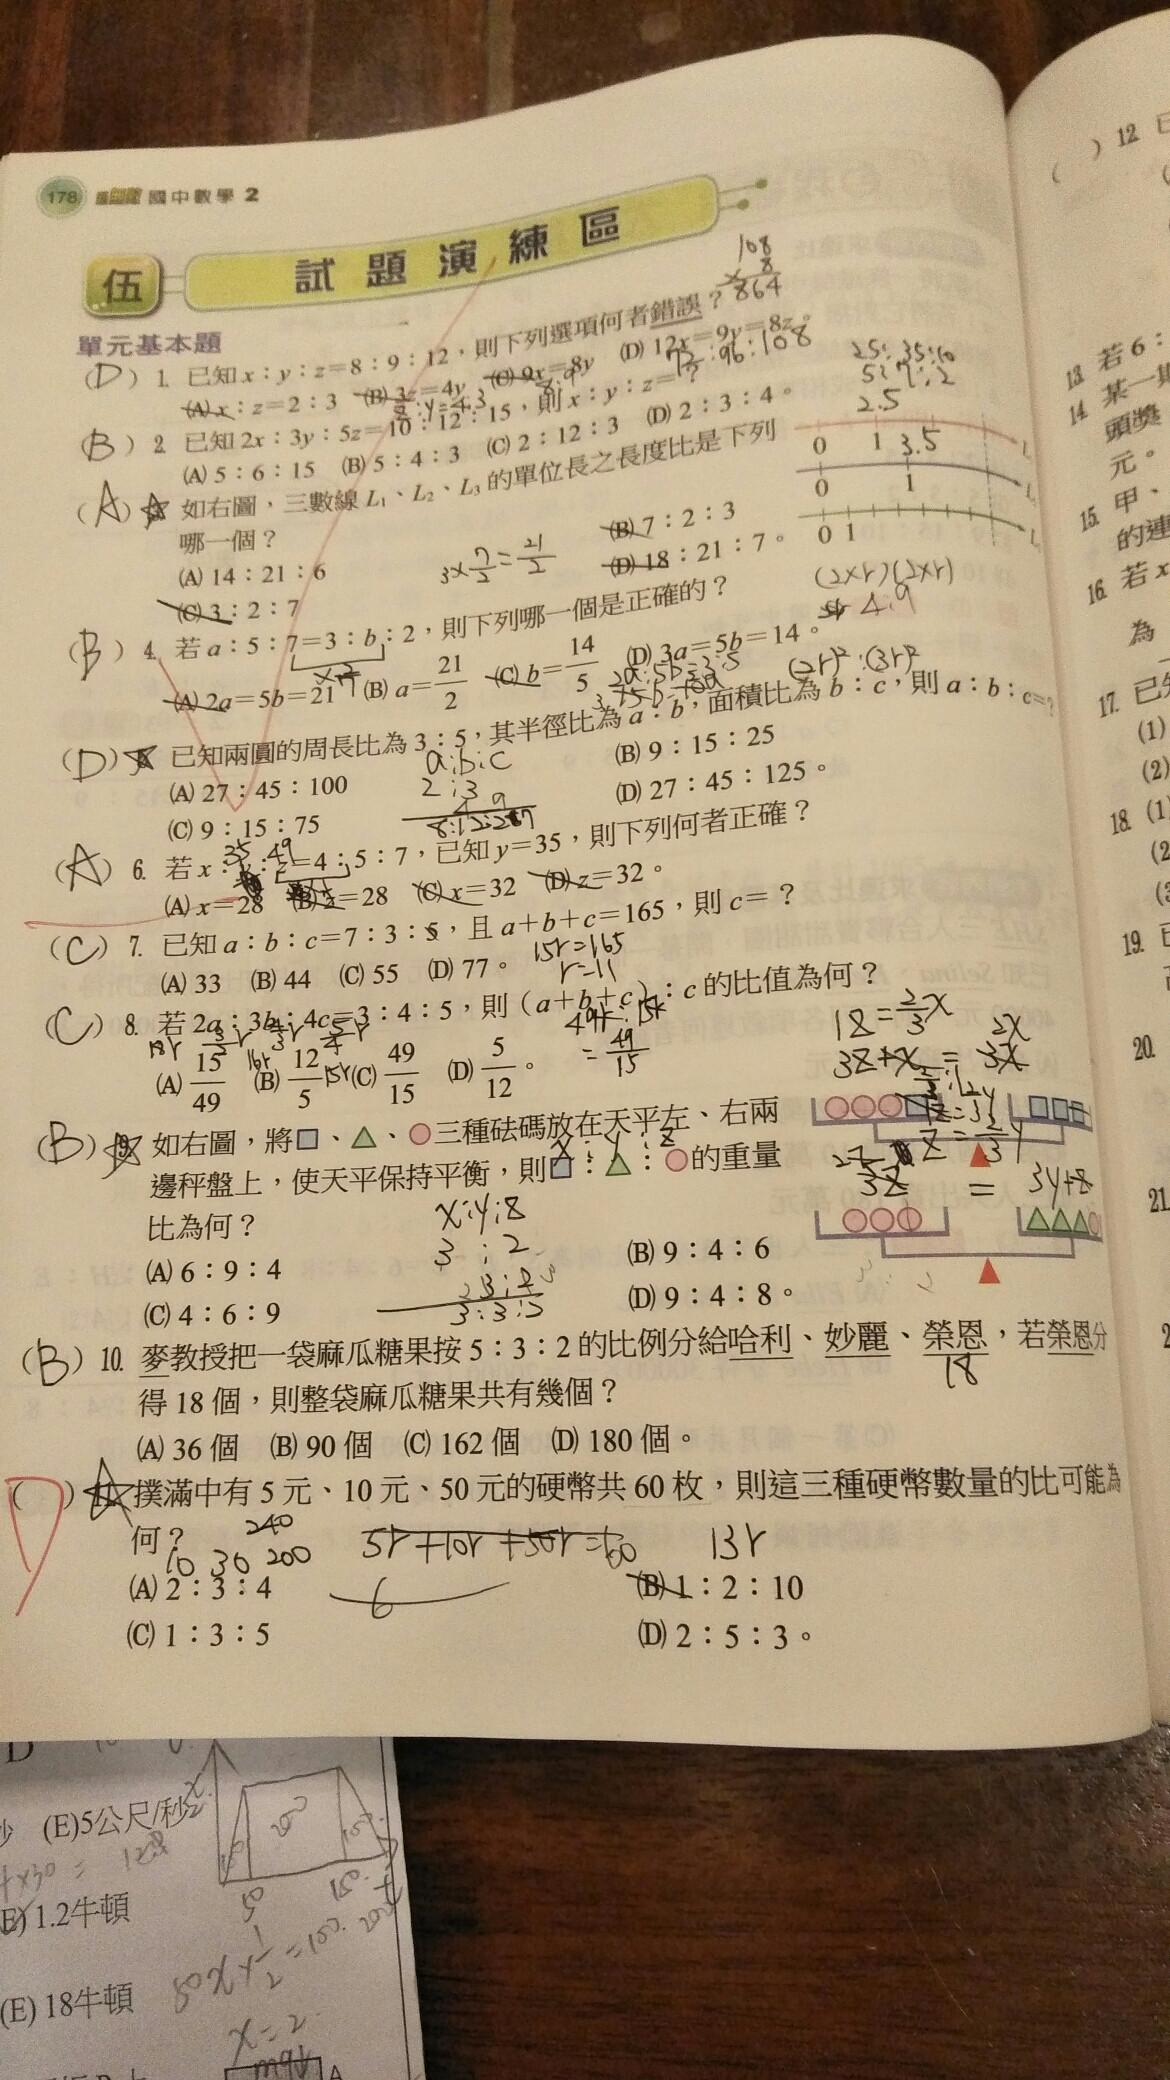 178 國中數學 2
伍 試題演練區
108
×8
864
單元基本題
(D) 1. 已知 x：y：z＝8：9：12，則下列選項何者錯誤？
(A) x：z＝2：3 (B) 3z＝4y (C) 9x＝8y (D) 12x＝9y＝8z。
72：96：108
(B) 2. 已知 2x：3y：5z＝10：12：15，則 x：y：z＝？
(A) 5：6：15 (B) 5：4：3 (C) 2：12：3 (D) 2：3：4。
25：35：10
5：7：2
2.5
0 1 3.5
0 1
0 1
(A) 如右圖，三數線 L₁、L₂、L₃ 的單位長之長度比是下列
哪一個？
(A) 14：21：6 (B) 7：2：3
3×7/2＝21/2
(C) 3：2：7 (D) 18：21：7。
(B) 4. 若 a：5：7＝3：b：2，則下列哪一個是正確的？
(A) 2a＝5b＝21 (B) a＝21/2 (C) b＝14/5 (D) 3a＝5b＝14。
4:9
(2r)²:(3r)²
(D) 已知兩圓的周長比為 3：5，其半徑比為 a：b，面積比為 b：c，則 a：b：c＝？
(A) 27：45：100 (B) 9：15：25
(C) 9：15：75 (D) 27：45：125。
a:b:c
2:3
4 9
(A) 6. 若 x：y：z＝4：5：7，已知 y＝35，則下列何者正確？
35 49
(A) x＝28 (B) z＝28 (C) x＝32 (D) z＝32。
(C) 7. 已知 a：b：c＝7：3：5，且 a＋b＋c＝165，則 c＝？
(A) 33 (B) 44 (C) 55 (D) 77。
15r＝165
r＝11
(C) 8. 若 2a：3b：4c＝3：4：5，則（a＋b＋c）：c 的比值為何？
(A) 15/49 (B) 12/5 (C) 49/15 (D) 5/12。
18r 16r 15r
49r：15r
＝49/15
(B) 9. 如右圖，將□、△、○三種砝碼放在天平左、右兩
邊秤盤上，使天平保持平衡，則□：△：○的重量
比為何？
x：y：z
(A) 6：9：4 (B) 9：4：6
(C) 4：6：9 (D) 9：4：8。
x:y:z
3 : 2
3z+x＝3x
2x
3z ＝ 3y+z
(B) 10. 麥教授把一袋麻瓜糖果按 5：3：2 的比例分給哈利、妙麗、榮恩，若榮恩分
18
得 18 個，則整袋麻瓜糖果共有幾個？
(A) 36 個 (B) 90 個 (C) 162 個 (D) 180 個。
( ) 撲滿中有 5 元、10 元、50 元的硬幣共 60 枚，則這三種硬幣數量的比可能為
何？
240
10 30 200
5r+10r+50r=60
13r
(A) 2：3：4 (B) 1：2：10
6
(C) 1：3：5 (D) 2：5：3。
) 12.
13. 若 6：
14. 某一
頭獎
元。
15. 甲、
的連
16. 若 x
為
17. 已知
(1)
(2)
18. (1)
(2)
(3)
19.
20.
21.
(E)5公尺/秒
×30＝128
(E) 1.2牛頓
50
(E) 18牛頓
x＝2